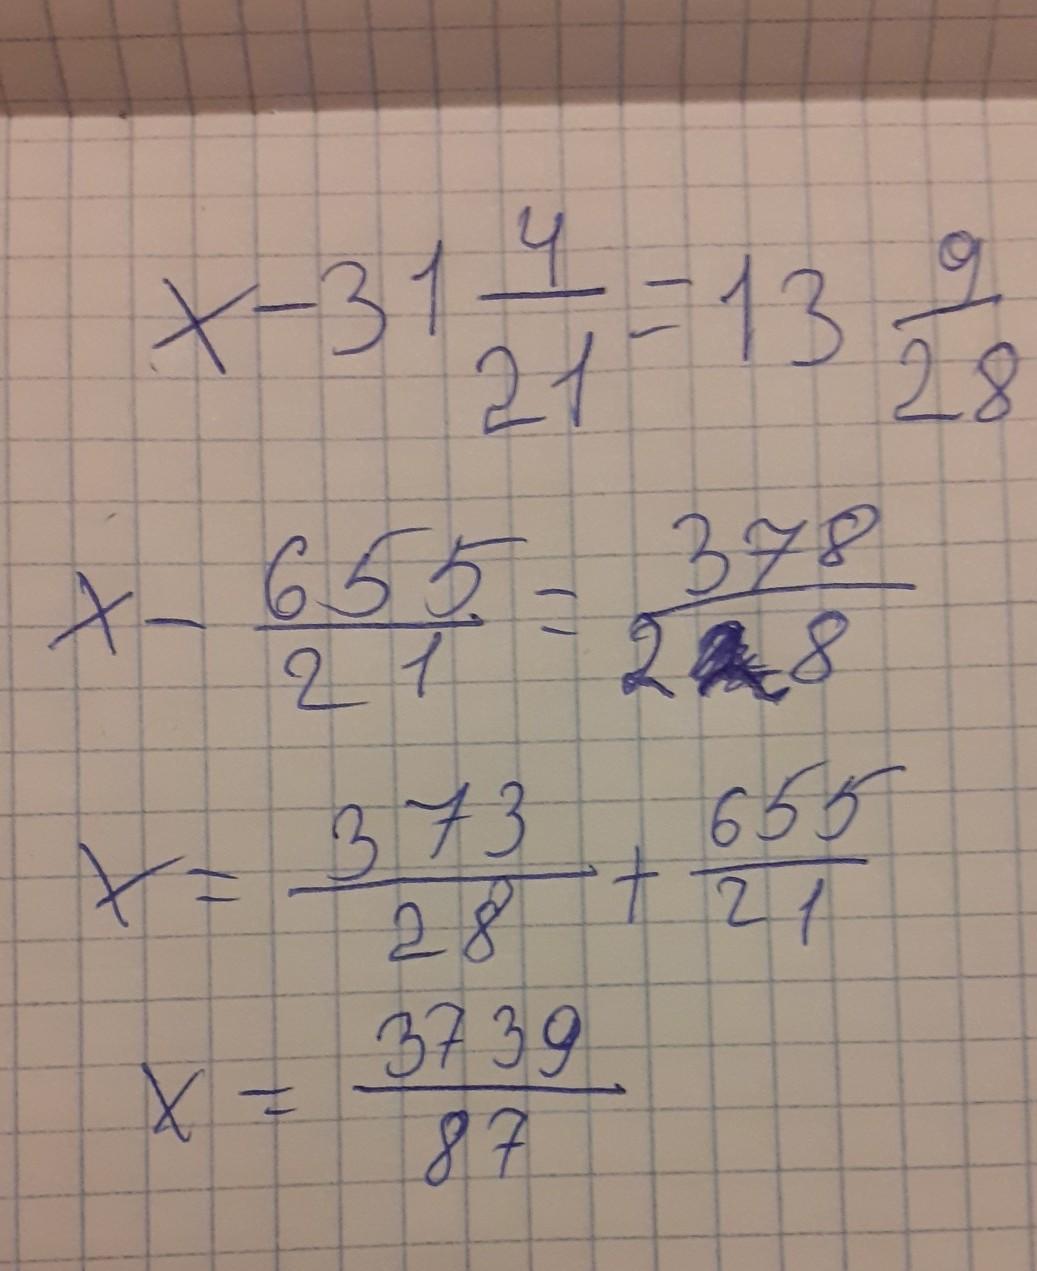 x - 31 4/21 = 13 9/28
x - 655/21 = 378/28
x = 373/28 + 655/21
x = 3739/87